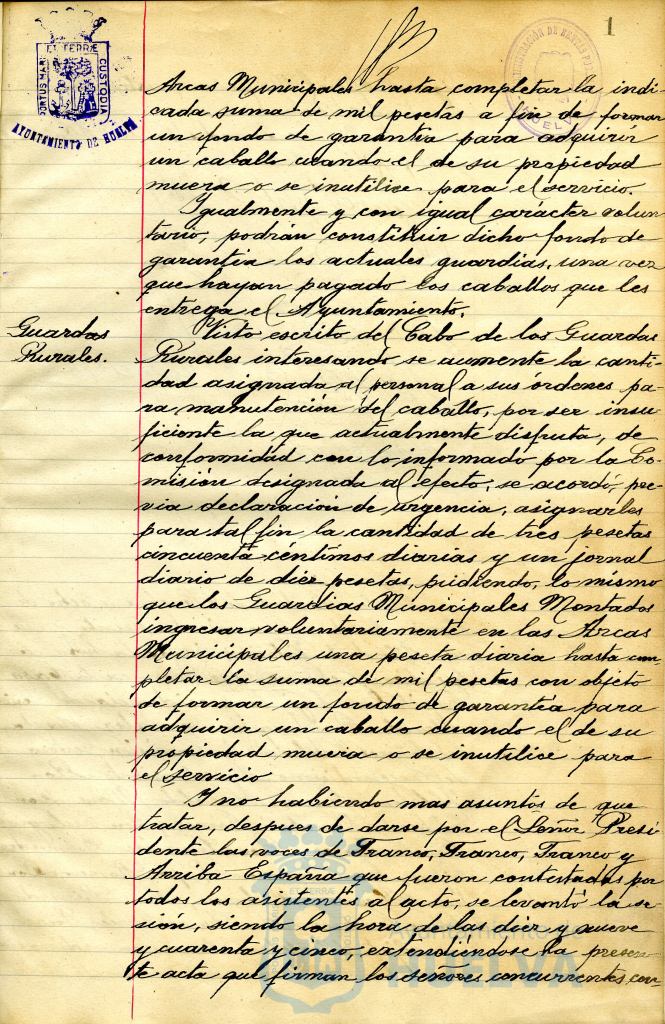 1
PORTUS MARIS ET TERRÆ CUSTODIA
AYUNTAMIENTO DE HUELVA
Arcas Municipales hasta completar la indi-
cada suma de mil pesetas a fin de formar
un fondo de garantía para adquirir
un caballo cuando el de su propiedad
muera o se inutilice para el servicio.
Igualmente y con igual carácter volun-
tario, podrán constituir dicho fondo de
garantia los actuales guardias, una vez
que hayan pagado los caballos que les
entrega el Ayuntamiento.
Guardas
Rurales.
Visto escrito del Cabo de los Guardas
Rurales interesando se aumente la canti-
dad asignada al personal a sus órdenes pa-
ra manutención del caballo, por ser insu-
ficiente la que actualmente disfruta, de
conformidad con lo informado por la Co-
misión designada al efecto, se acordó, pre-
via declaración de urgencia, asignarles
para tal fin la cantidad de tres pesetas
cincuenta céntimos diarias y un jornal
diario de diez pesetas, pudiendo, lo mismo
que los Guardias Municipales Montados
ingresar voluntariamente en las Arcas
Municipales una peseta diaria hasta com
pletar la suma de mil pesetas con objeto
de formar un fondo de garantía para
adquirir un caballo cuando el de su
propiedad muera o se inutilice para
el servicio
Y no habiendo mas asuntos de que
tratar, despues de darse por el Señor Presi
dente las voces de Franco, Franco, Franco y
Arriba España que fueron contestadas por
todos los asistentes al acto, se levantó la se-
sión, siendo la hora de las diez y nueve
y cuarenta y cinco, extendiéndose la presen-
te acta que firman los señores concurrentes con-